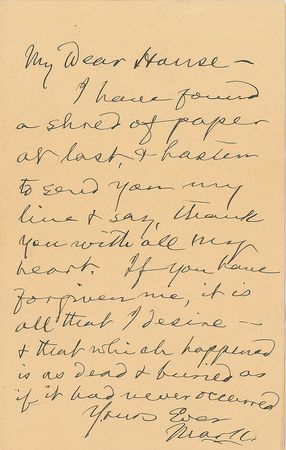 My Dear House —
I have found
a shred of paper
at last, & hasten
to send you my
line & say, thank
you with all my
heart. If you have
forgiven me, it is
all that I desire —
& that which happened
is as dead & buried as
if it had never occurred
Yours Ever
Mark.